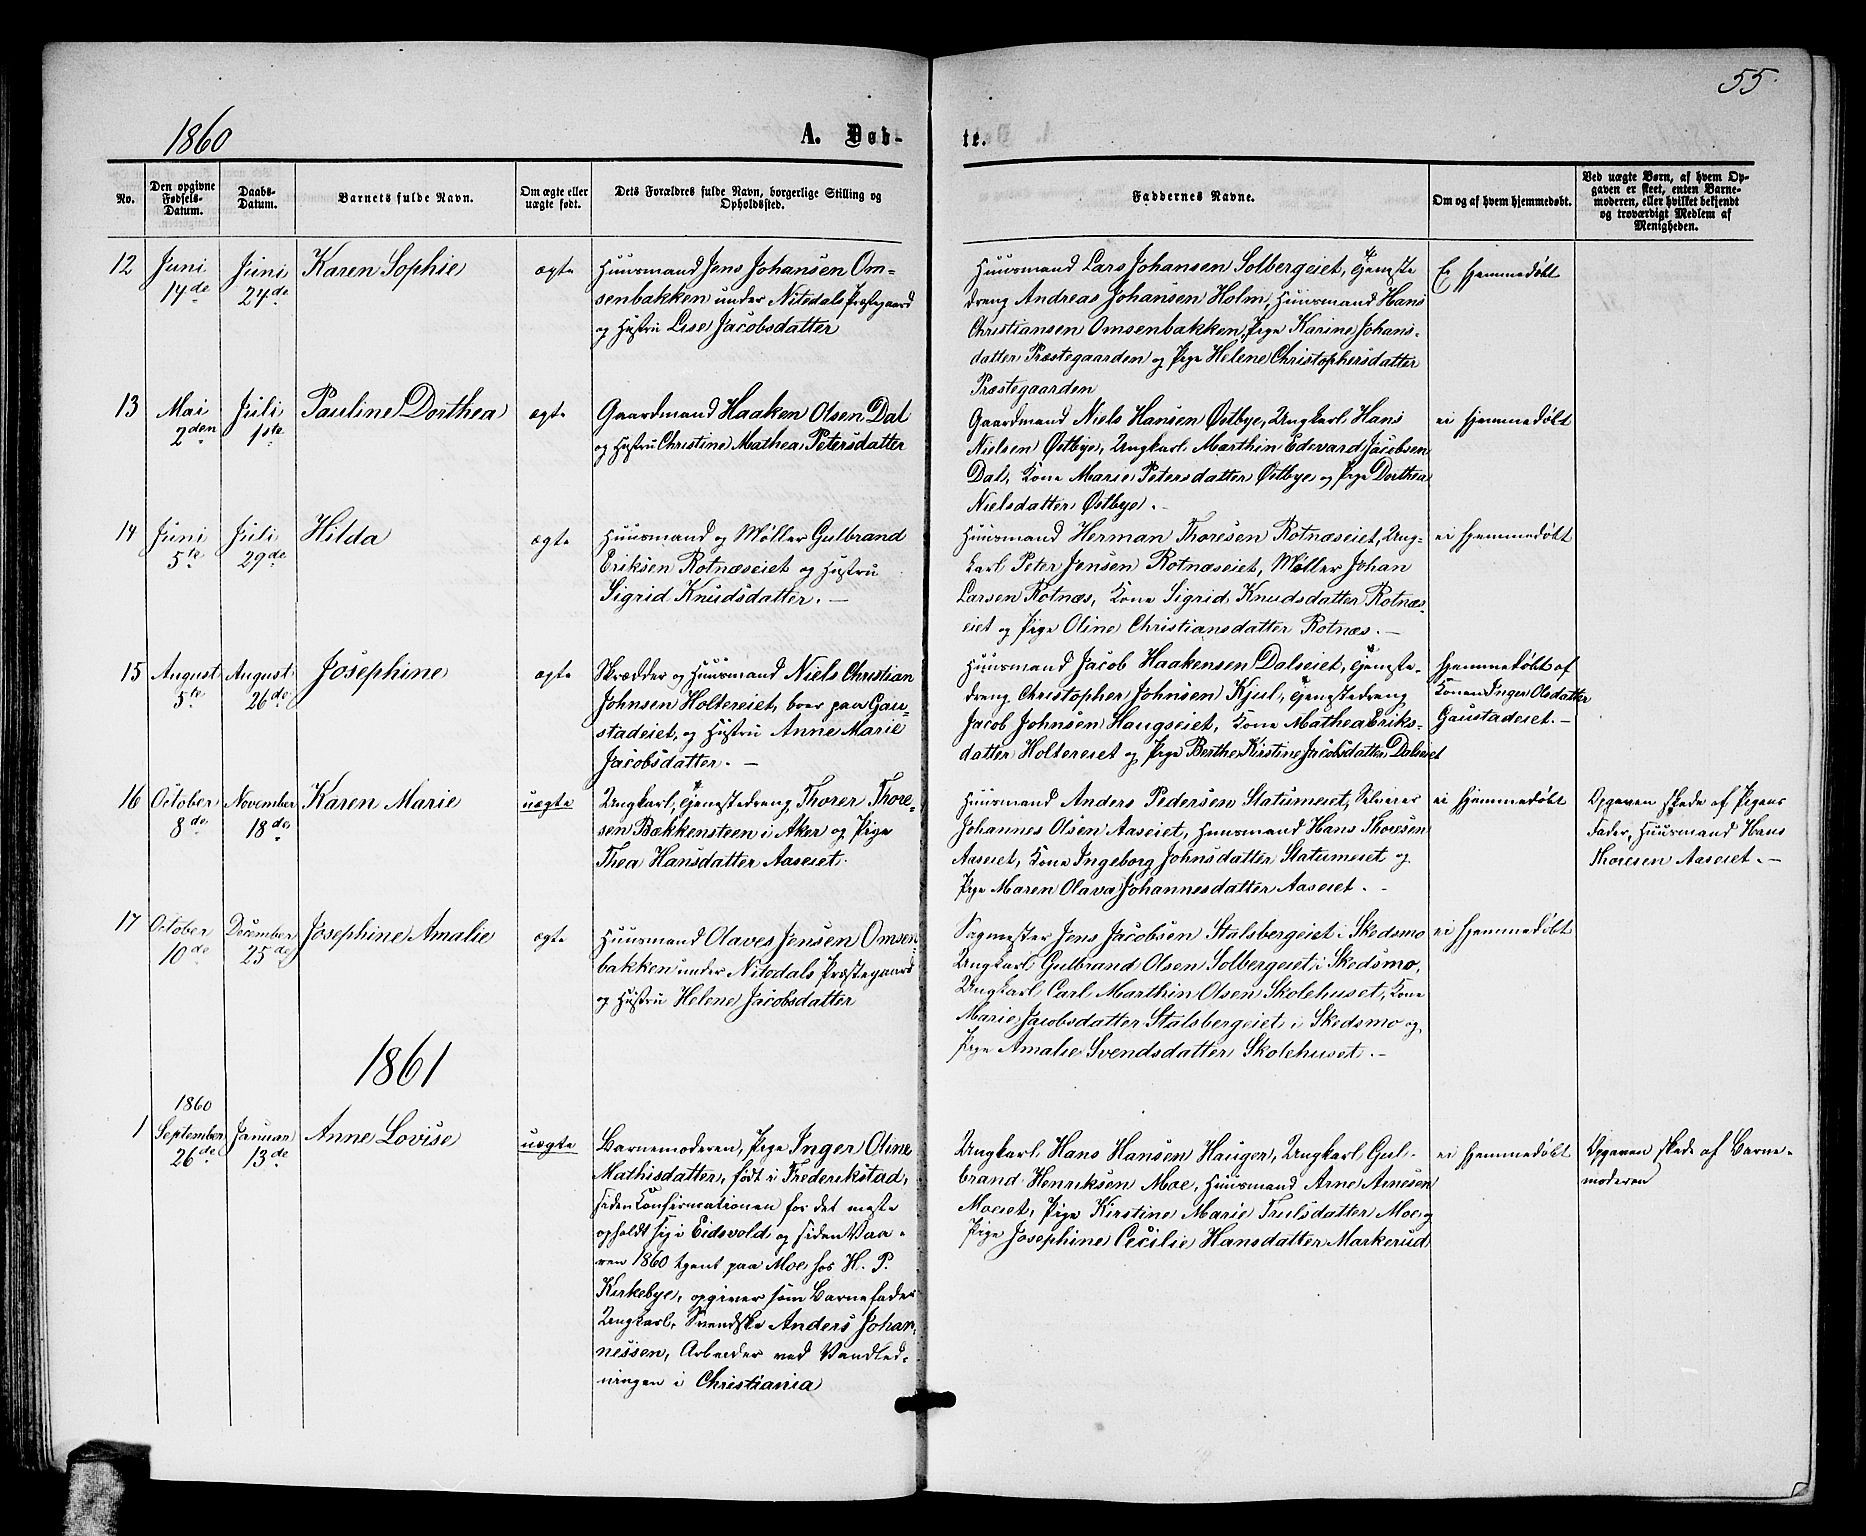 55.
1860
A. Døb-
te.
No.
Den opgivne
Fødsels-
Datum.
Daabs-
Datum.
Barnets fulde Navn.
Om ægte eller
uægte født.
Dets Forældres fulde Navn, borgerlige Stilling og
Opholdssted.
Faddernes Navne.
Om og af hvem hjemmedøbt.
Ved uægte Børn, af hvem Op-
gaven er skeet, enten Barne-
moderen, eller hvilket bekjendt
og troværdigt Medlem af
Menigheden.
12
Juni
14de
Juni
24de
Karen Sophie
ægte
Huusmand Jens Johansen Om-
senbakken under Nitedals Præstegaard
og Hustru Lise Jacobsdatter
Huusmand Lars Johansen Solbergeiet, Tjeneste
dreng Andreas Johansen Holm, Huusmand Hans
Christiansen Omsenbakken, Pige Karine Johans-
datter Præstegaarden og Pige Helene Christophersdatter
Præstegaarden
Ei hjemmedøbt
13
Mai
2den
Juli
1ste
Pauline Dorthea
ægte
Gaardmand Haaken Olsen Dal
og Hustru Christine Mathea Petersdatter
Gaardmand Niels Hansen Østbye, Ungkarl Hans
Nielsen Østbye, Ungkarl Marthin Edevard Jacobsen
Dal, Kone Marie Petersdatter Østbye og Pige Dorthea
Nielsdatter Østbye. -
ei hjemmedøbt
14
Juni
5te
Juli
29de
Hilda
ægte
Huusmand og Møller Gulbrand
Eriksen Rotnæseiet og Hustru
Sigrid Knudsdatter. -
Huusmand Herman Thoresen Rotnæseiet, Ung-
karl Peter Jensen Rotnæseiet, Møller Johan
Larsen Rotnæs, Kone Sigrid Knudsdatter Rotnæs-
eiet og Pige Oline Christiansdatter Rotnæs. -
ei hjemmedøbt
15
August
5te
August
26de
Josephine
ægte
Skrædder og Huusmand Niels Christian
Johnsen Holtereiet, boer paa Gau-
stadeiet, og Hustru Anne Marie
Jacobsdatter. -
Huusmand Jacob Haakensen Dalseiet, Tjeneste-
dreng Christopher Johnsen Kjul, Tjenestedreng
Jacob Johnsen Haugseiet, Kone Mathea Eriks-
datter Holtereiet og Pige Berthe Kirstine Jacobsdatter Dalseiet
Hjemmedøbt af
Konen Inger Olsdatter
Gaustadeiet. -
16
October
8de
November
18de
Karen Marie
uægte
Ungkarl, Tjenestedreng Thorer Thore-
sen Bækkensteen i Aker og Pige
Thea Hansdatter Aaseiet.
Huusmand Anders Pedersen Statumeiet, Selveier
Johannes Olsen Aaseiet, Huusmand Hans Thoresen
Aaseiet, Kone Ingeborg Johnsdatter Statumeiet og
Pige Maren Olava Johannesdatter Aaseiet. -
ei hjemmedøbt
Opgaven skede af Pigens
Fader, Huusmand Hans
Thoresen Aaseiet. -
17
October
10de
December
25de
Josephine Amalie
ægte
Huusmand Olaves Jensen Omsen-
bakken under Nitedals Præstegaard
og Hustru Helene Jacobsdatter
Sagmester Jens Jacobsen Stalsbergeiet i Skedsmo
Ungkarl Gulbrand Olsen Solbergeiet i Skedsmo,
Ungkarl Carl Marthin Olsen Skolehuset, Kone
Marie Jacobsdatter Stalsbergeiet i Skedsmo og
Pige Amalie Svendsdatter Skolehuset. -
ei hjemmedøbt
1861
1
1860
September
26de
Januar
13de
Anne Lovise
uægte
Barnemoderen, Pige Inger Oline
Mathisdatter, født i Frederikstad,
siden Confirmationen for det meste
opholdt sig i Eidsvold og siden Vaa-
ren 1860 tjent paa Moe hos H. P.
Kirkebye, opgiver som Barnefader
Ungkarl, Svendske Anders Johan-
nessen, Arbeider ved Vandled-
ningen i Christiania
Ungkarl Hans Hansen Hauger, Ungkarl Gul-
brand Henriksen Moe, Huusmand Arne Arnesen
Moeiet, Pige Kirstine Marie Trulsdatter Moe og
Pige Josephine Cecilie Hansdatter Markerud
ei hjemmedøbt
Opgaven skede af Barne-
moderen